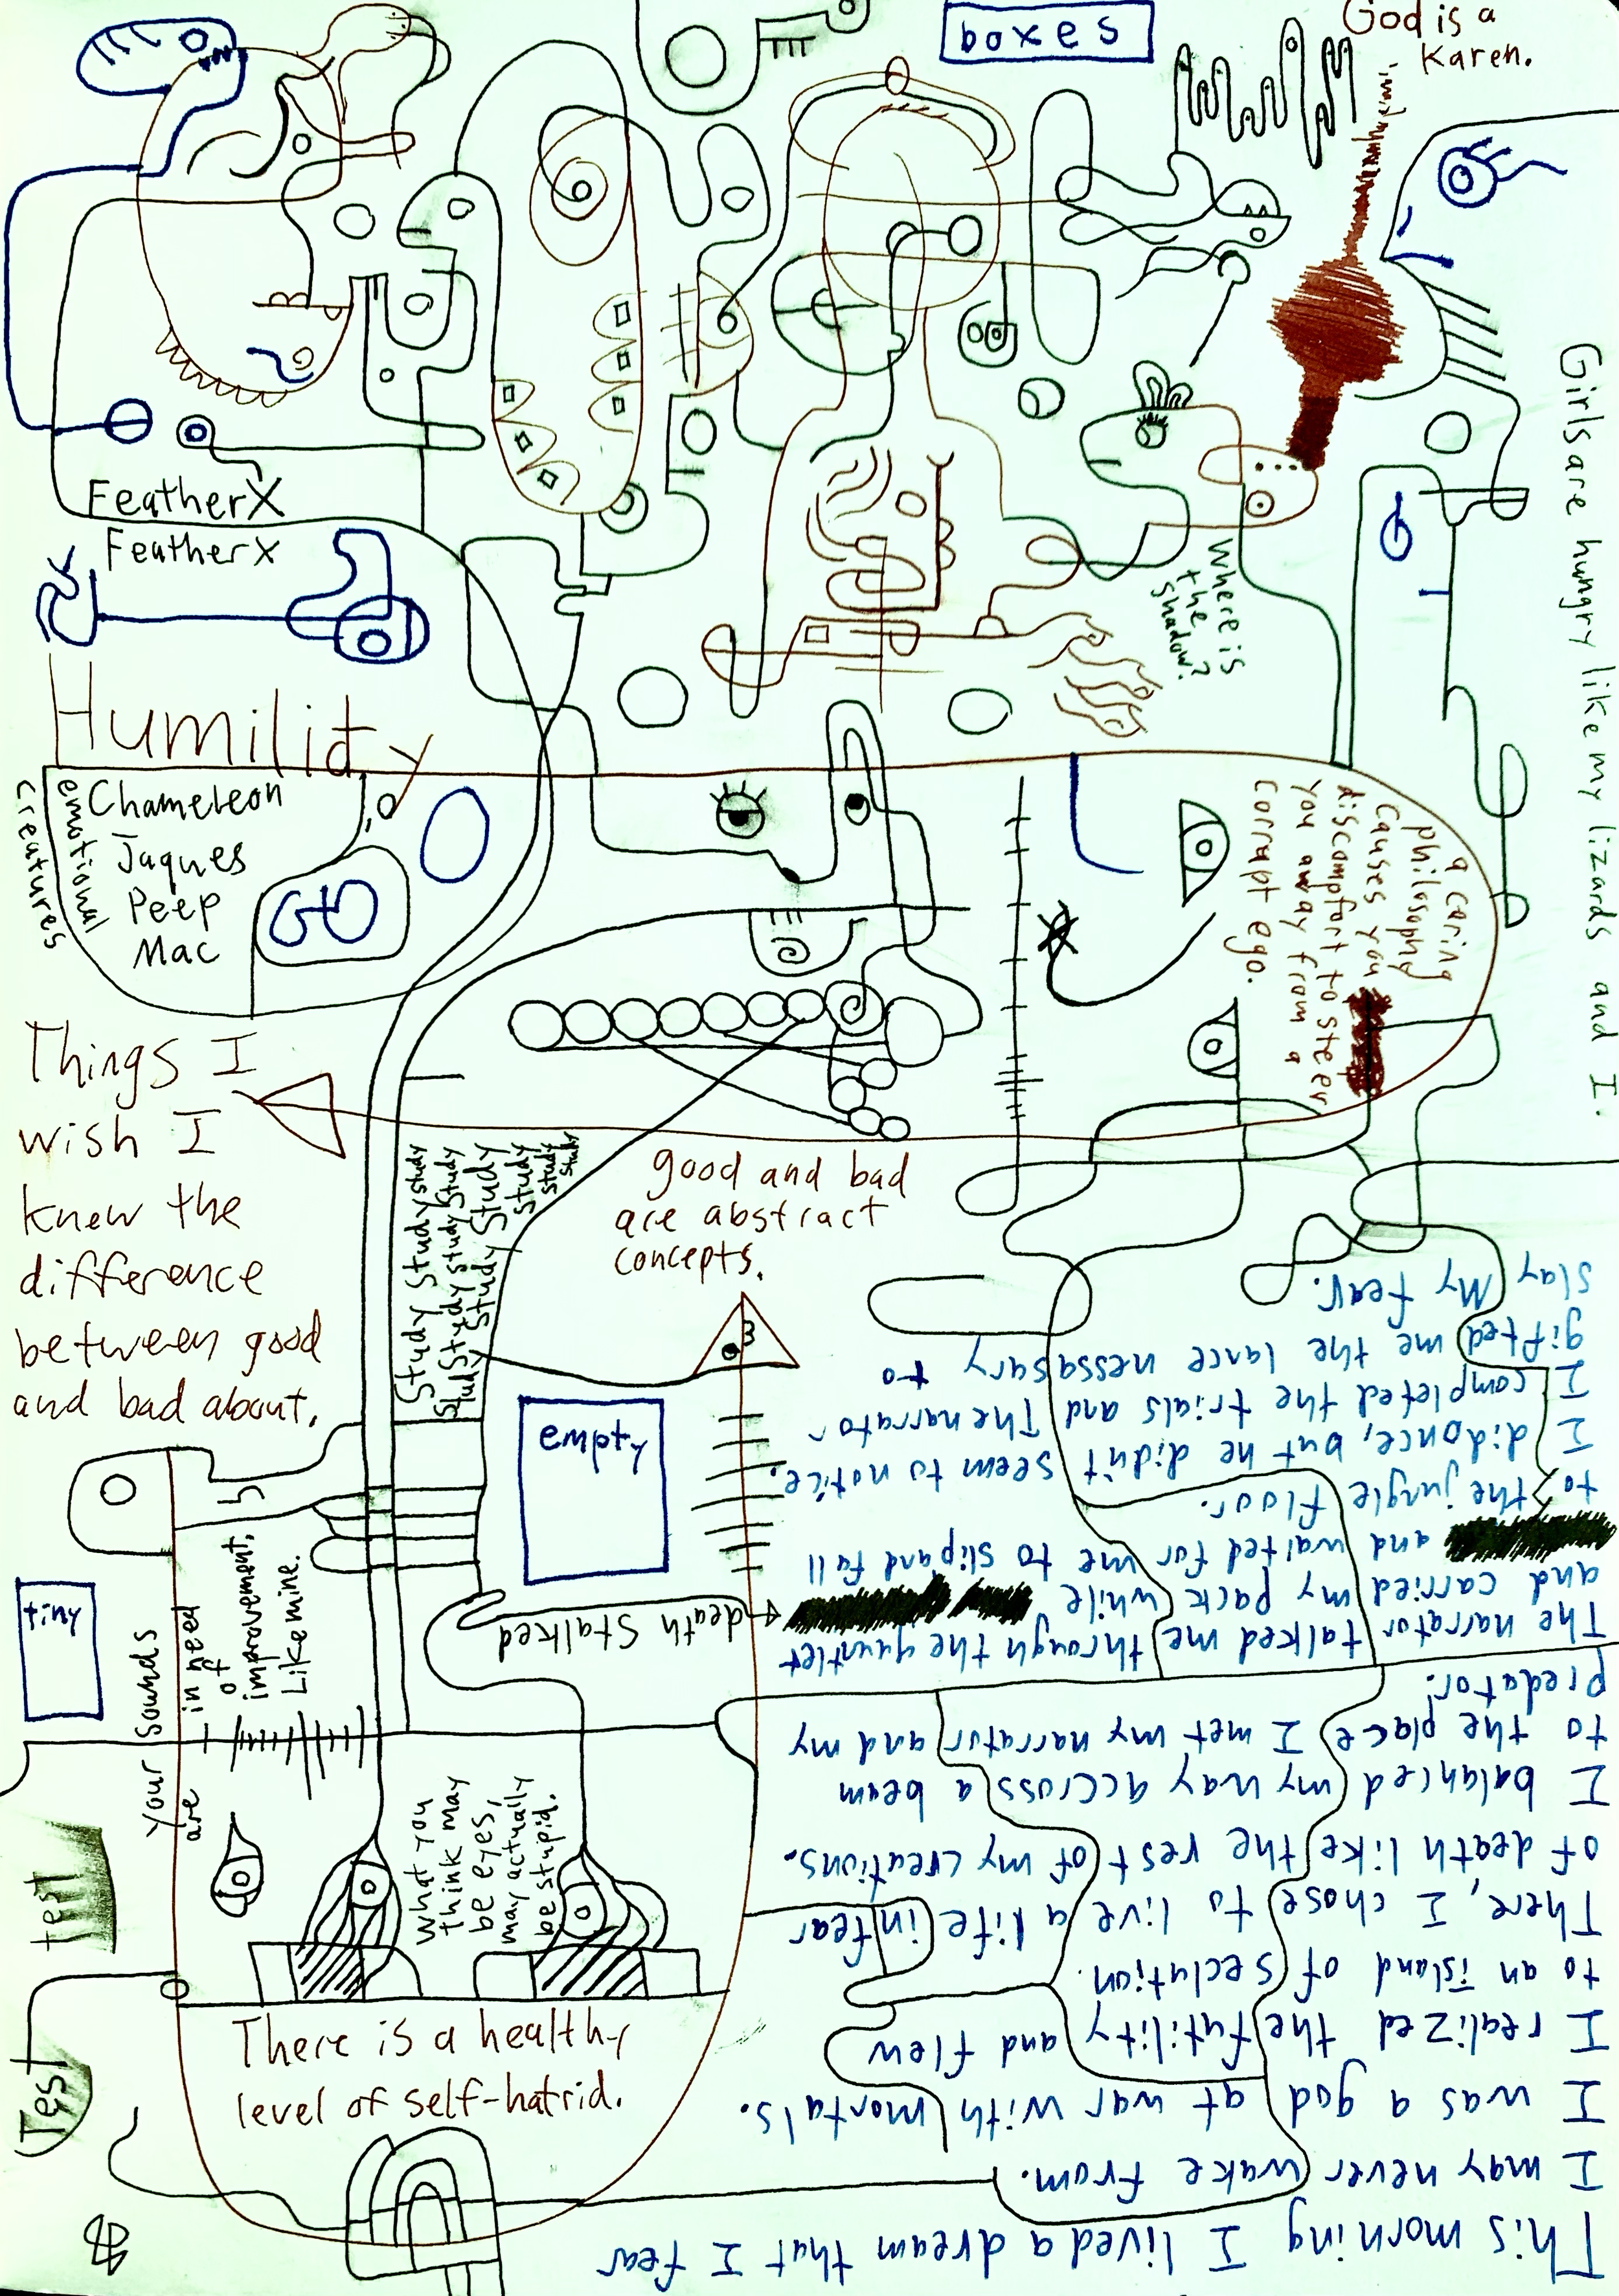 boxes
God is a
Karen.
Girls are hungry like my lizards and I.
FeatherX
Featherx
Where is
the
shadow?
Humility
emotional
creatures
Chameleon
Jaques
Peep
Mac
a caring
philosophy
causes you
discompfort to steer
you away from a
corrupt ego.
Things I
wish I
knew the
difference
between good
and bad about.
Study Study study
Study Study study Study
Study Study
Study
Study
Study
good and bad
are abstract
concepts.
empty
tiny
Your Sounds
are in need
of
improvement,
Like mine.
death Stalked
What you
think may
be eyes,
may actually
be stupid.
Test
Test
There is a healthy
level of self-hatrid.
This morning I lived a dream that I fear
I may never wake from.
I was a god at war with mortals.
I realized the futility and flew
to an island of seclution.
There, I chose to live a life in fear
of death like the rest of my creations.
I balanced my way accross a beam
to the place I met my narrator and my
predator.
The narrator talked me through the guantlet
and carried my pack while
and waited for me to slip and fall
to the jungle floor.
I did once, but he didn't seem to notice.
I completed the trials and The narrator
gifted me the lance nessasary to
slay My fear.